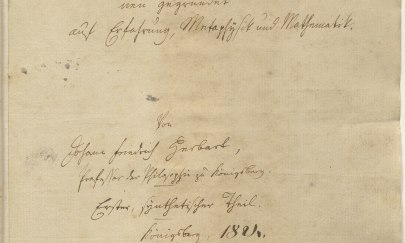 neu gegründet
auf Erfahrung, Metaphysik und Mathematik.
Von
Johann Friedrich Herbart,
Professor der Philosophie zu Königsberg.
Erster, synthetischer Theil.
Königsberg, 1824.